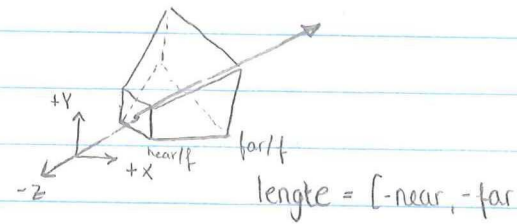 +Y
near/f
far/f
+X
-Z
lengte = [-near, -far